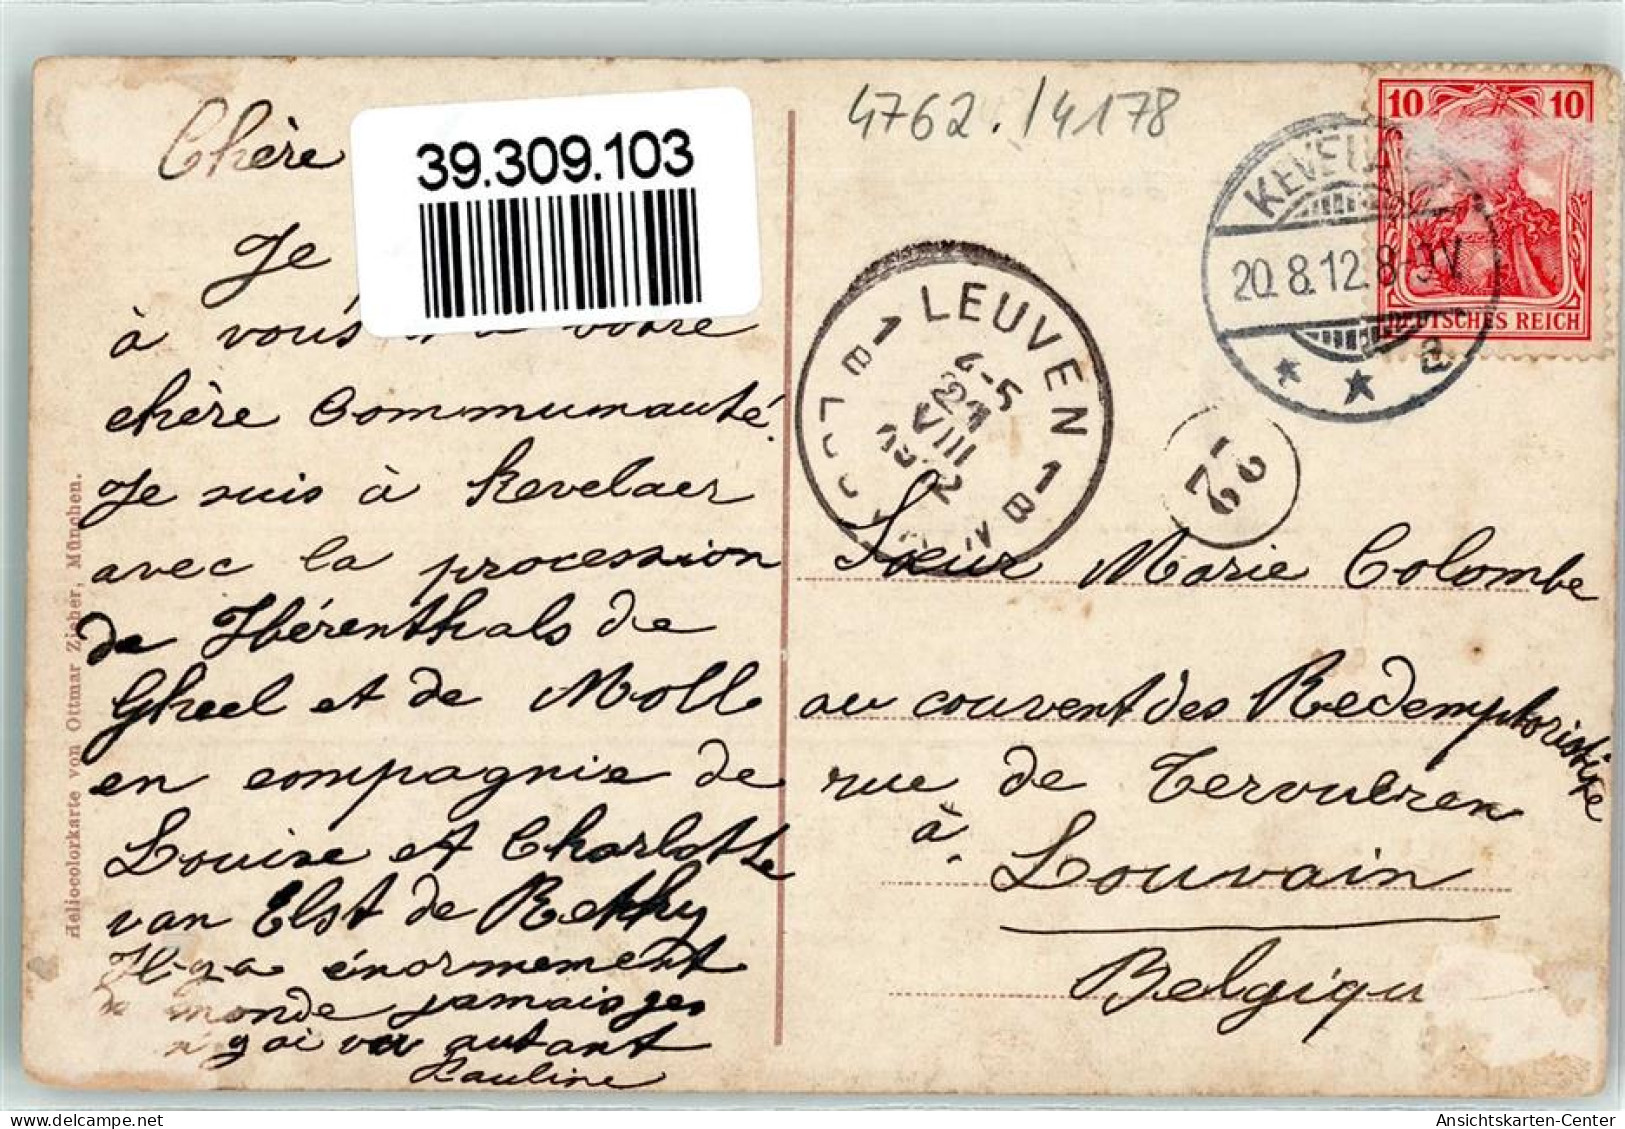 4762./4178
Chère
39.309.103
Je
à vous
votre
chère Communauté.
Je suis à Kevelaer
avec la procession
de Hérenthals de
Gheel et de Moll
en compagnie de
Louise et Charlotte
van Elst de Rethy
Il-y-a énormement
monde jamais je
n'ai vu autant
Pauline
Heliocolorkarte von Ottmar Zieher, München.
10 10
DEUTSCHES REICH
KEVELAER
20.8.12.8-9V
* * a
1 LEUVEN 1
B B
4-5
21
VIII
1912
22
Sœur Marie Colombe
au couvent des Redemptoristine
rue de Tervueren
à
Louvain
Belgique
Ansichtskarten-Center